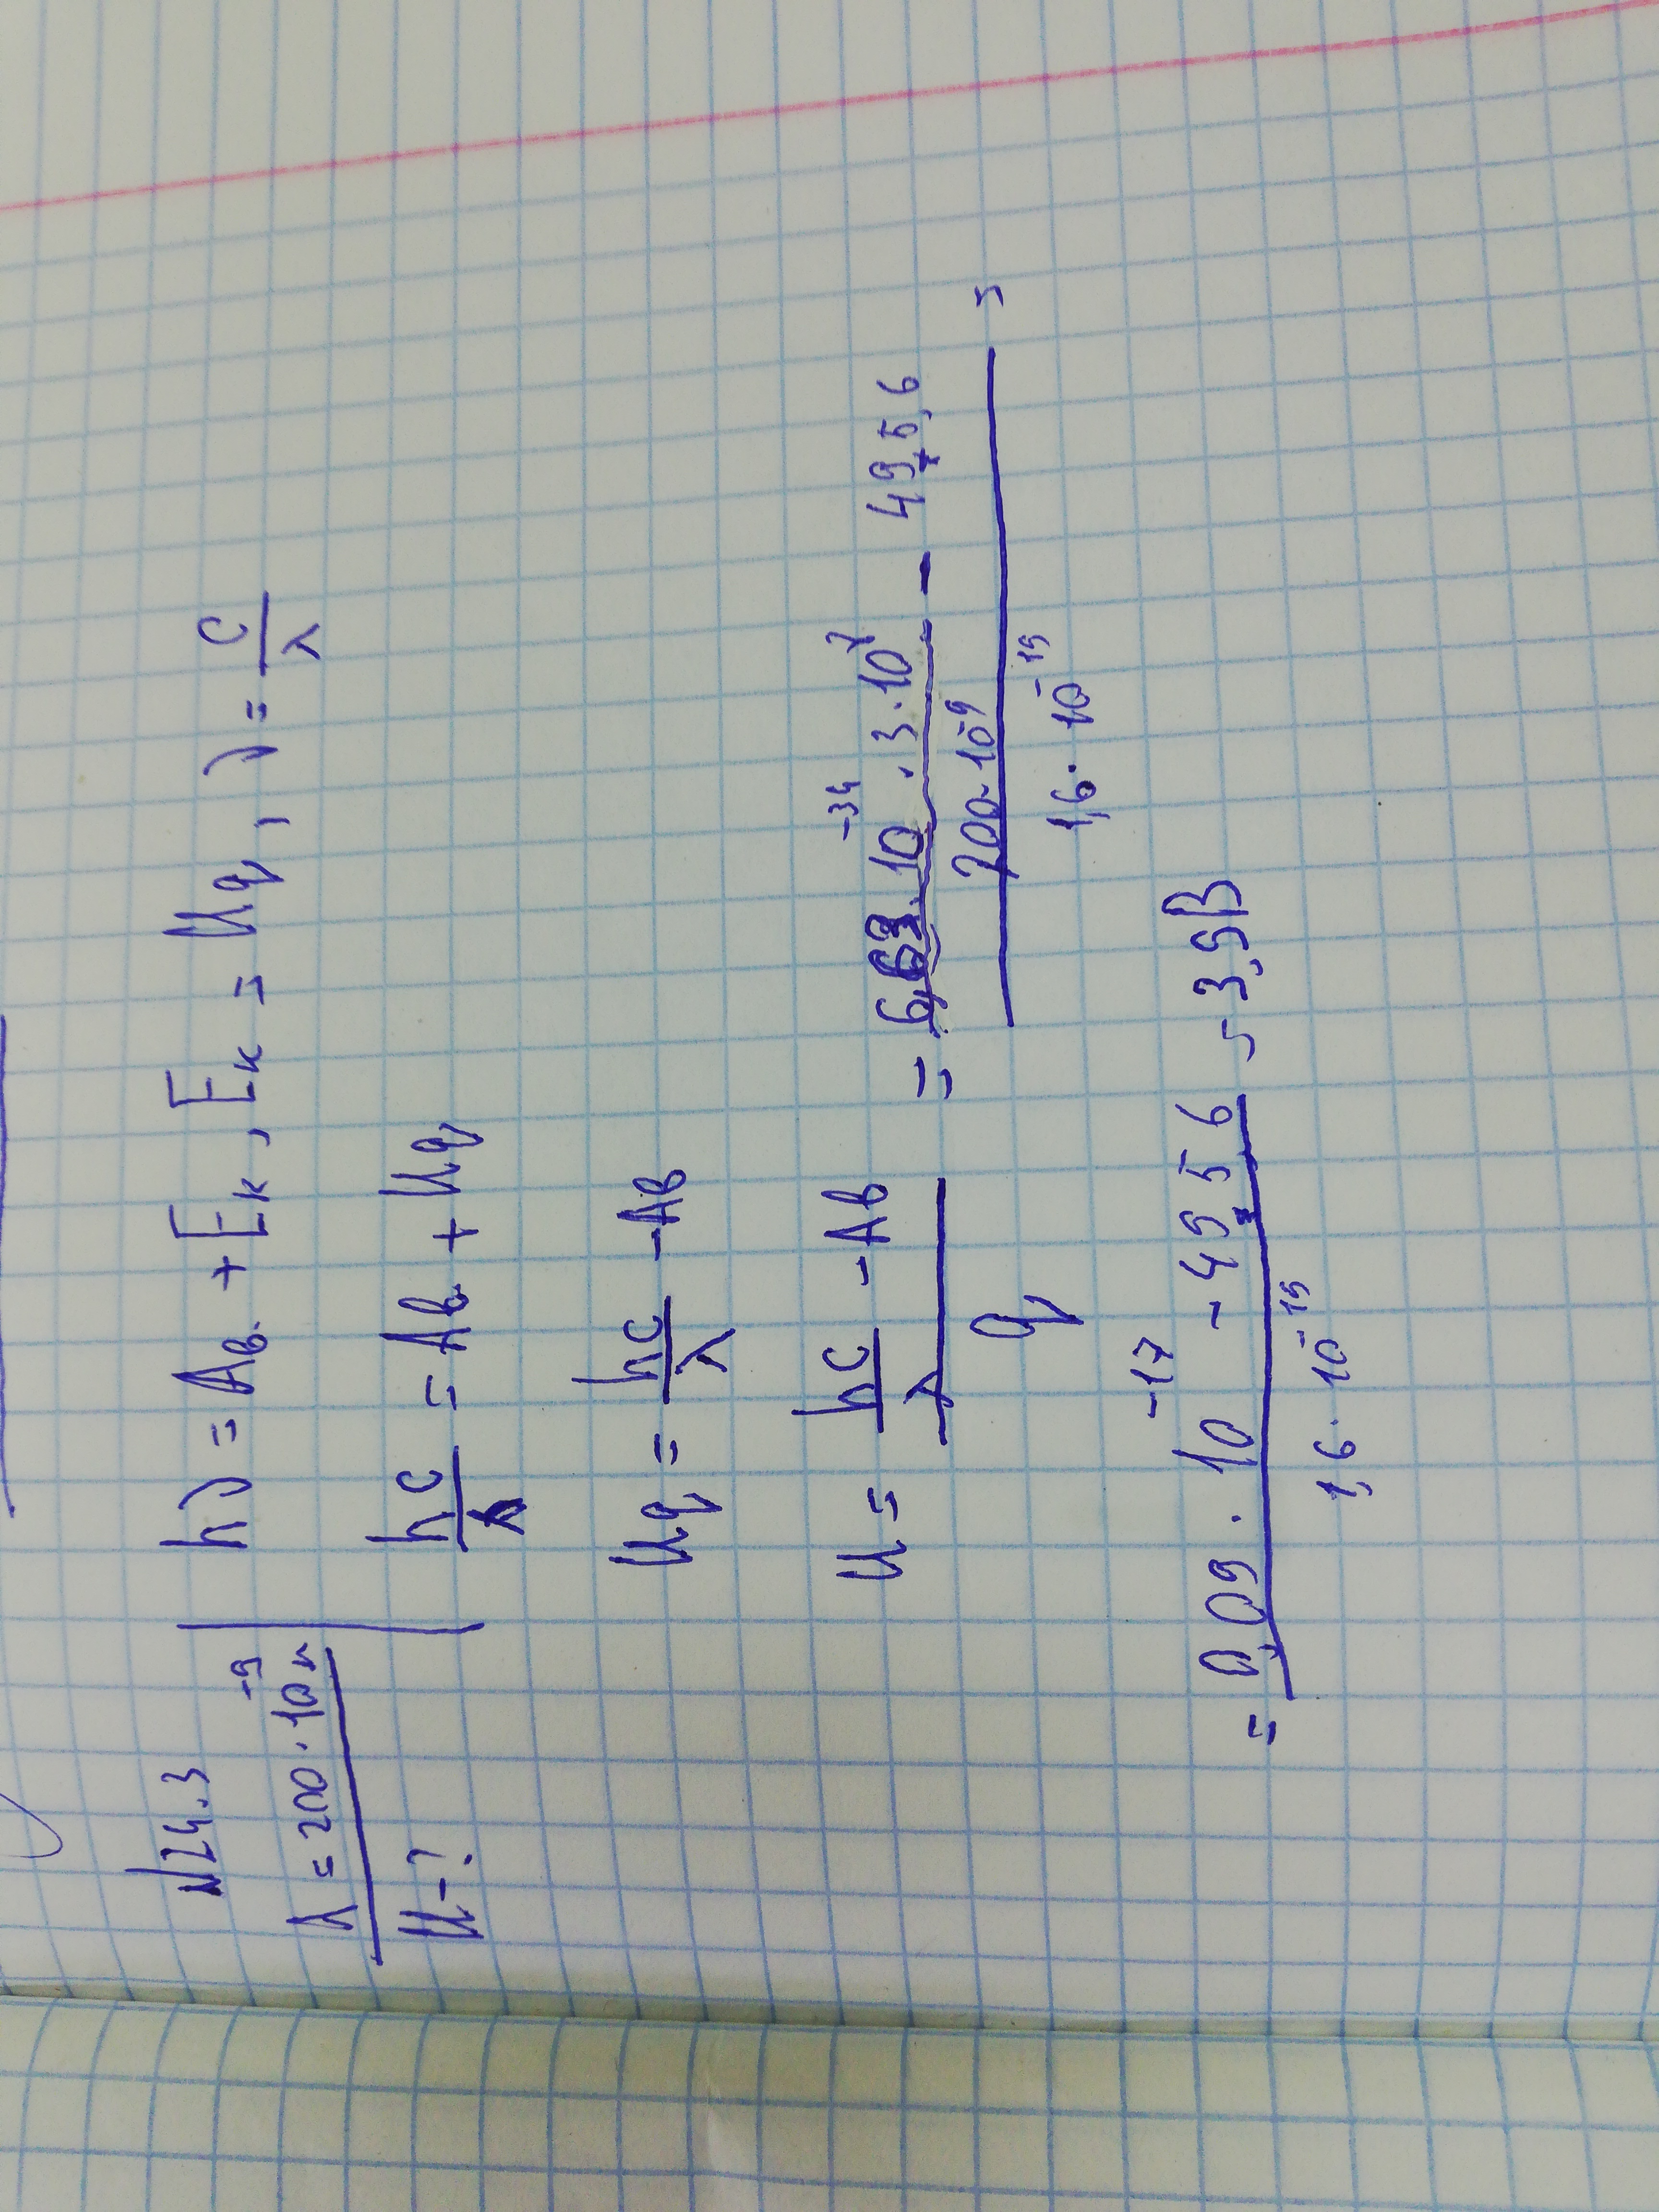 N24.3
λ = 200 · 10⁻⁹ м
U - ?
hν = Aв. + Eк, Eк = Uq, ν = c/λ
hc/λ = Aв + Uq
Uq = hc/λ - Aв
U = (hc/λ - Aв)/q = (6,63 · 10⁻³⁴ · 3 · 10⁷/200 · 10⁻⁹ - 49,5,6)/1,6 · 10⁻¹⁹ =
= (0,09 · 10⁻¹⁷ - 49,56)/1,6 · 10⁻¹⁹ = 3,9В